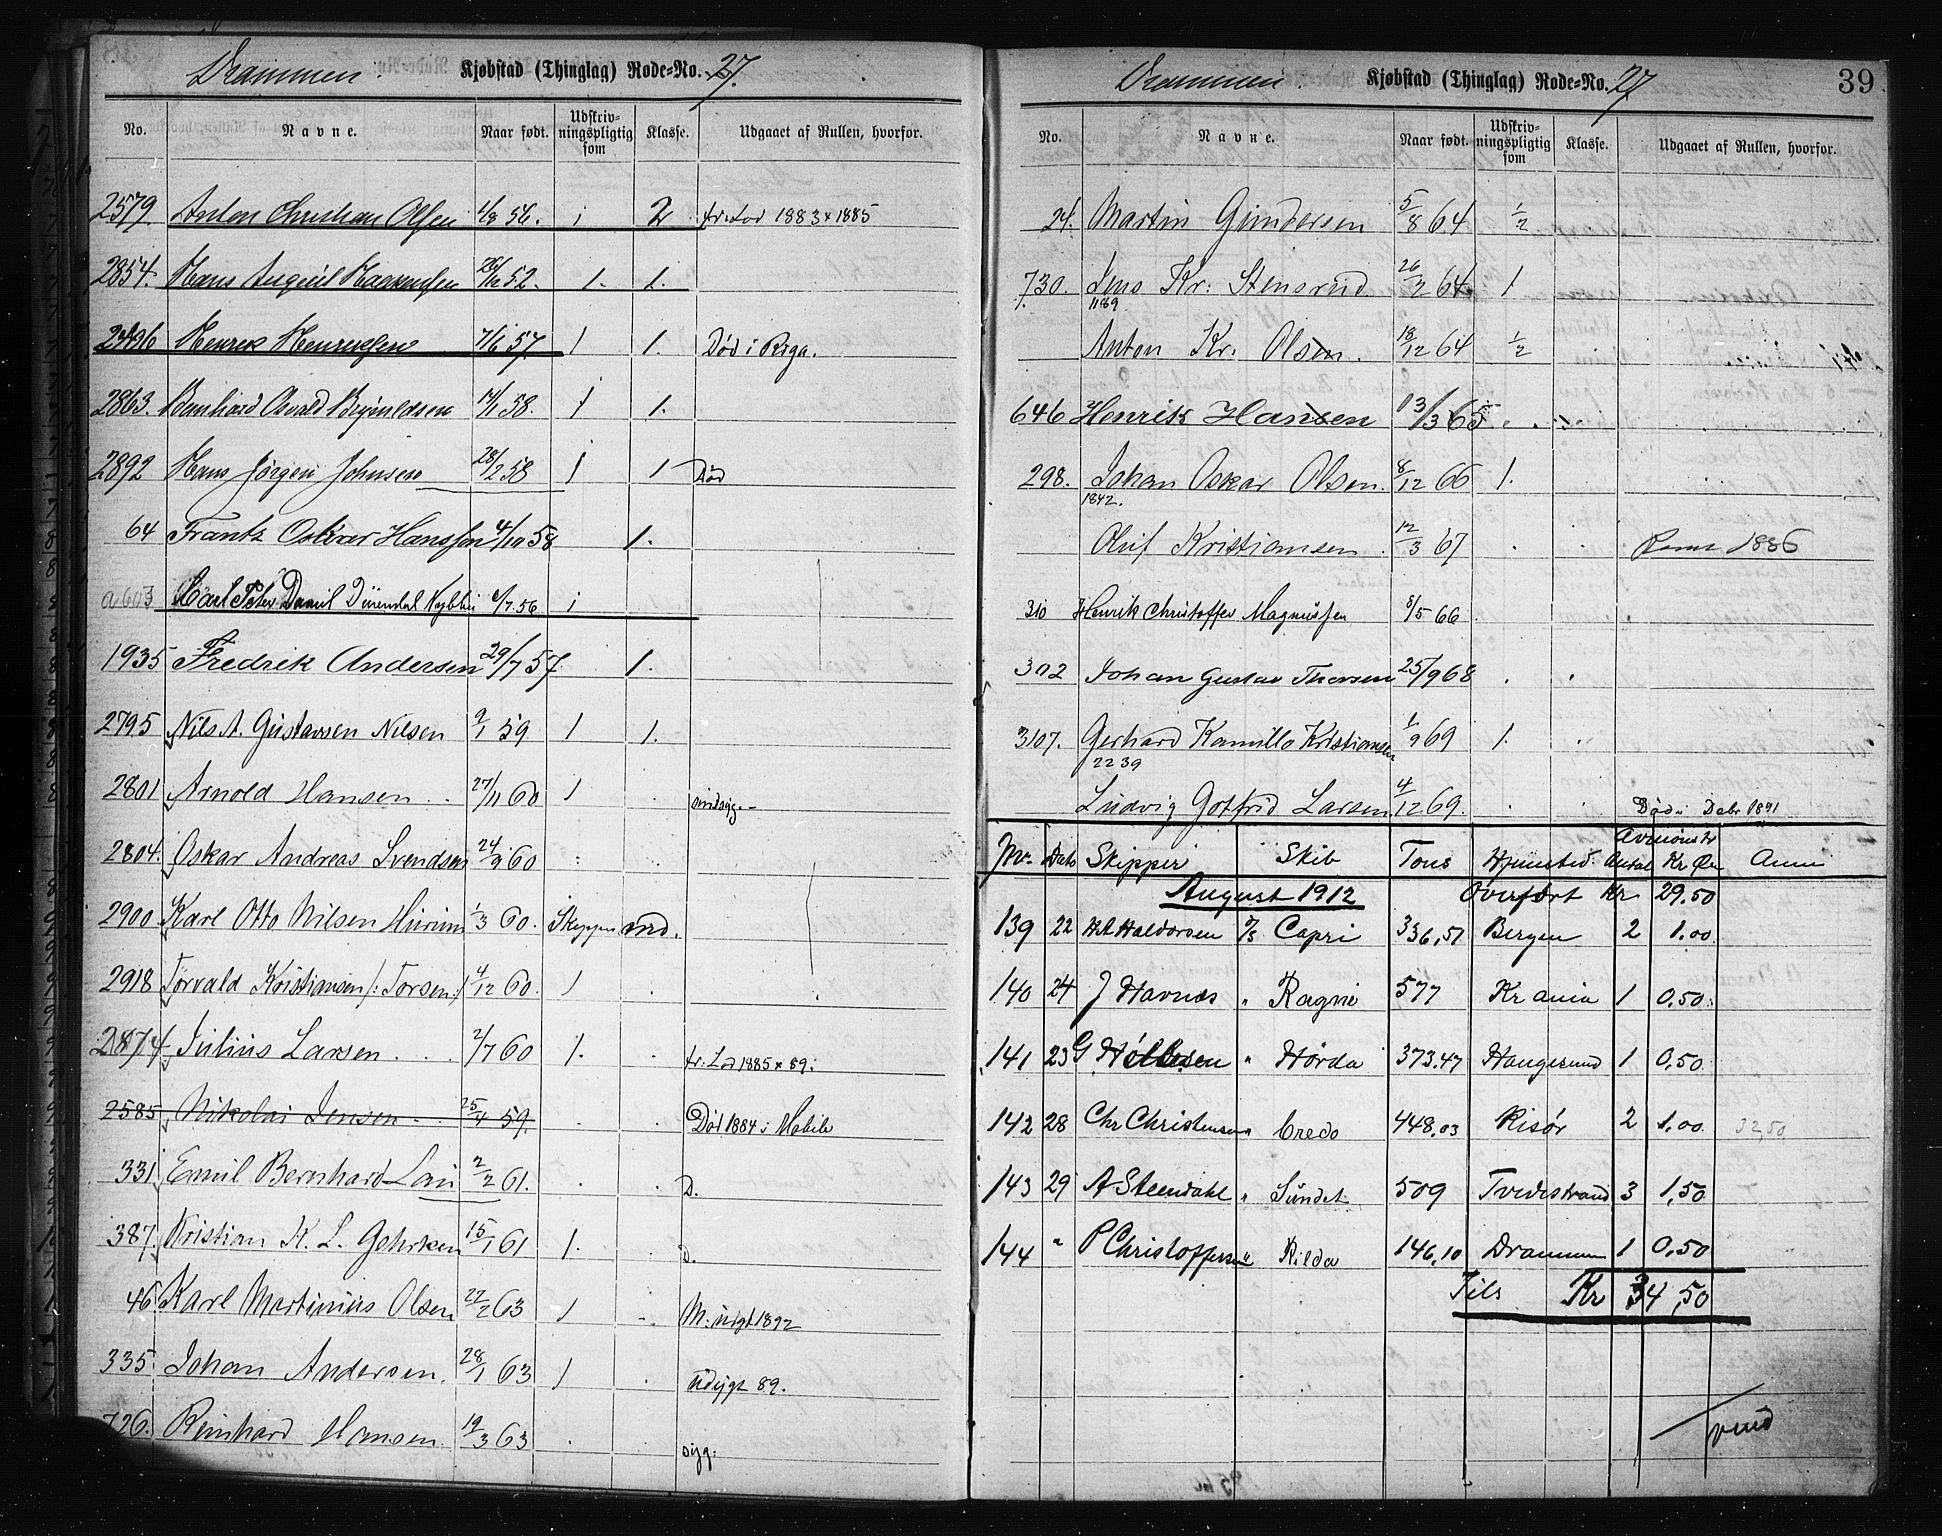 Drammen. Kjøbstad (Thinglag) Rode-No. 27.
No. Navne. Naar født. Udskrivningspligtig som Klasse. Udgaaet af Rullen, hvorfor.
2579. Anton Christian Olsen 1/8 56. 1 2
1883 1885
2854. Hans 52. 1. 1.
Henrik Henriksen 7/6 57 1 1. Død i Riga.
2863. Bernhard Osvald 58. 1 1.
2892 Hans Jörgen Johnsen 28/2 58 1 1 Død
64 Frantz Oskar Hanssen 4/10 58 1.
a 603 Karl Peter Daniel 7.56 1
1935 Fredrik Andersen 29/7 57 1.
2795 Nils A. Gustavsen Nilsen 9/1 59 1 1.
2801 Arnold Hansen 27/11 60 1
2804. Oskar Andreas Svendsen 24/9 60
2900 Karl Otto Nilsen 1/3 60. Skipper
2918 Torvald Kristiansen /: Torsen :/ 4/12 60. 1
2874 Julius Larsen 2/7 60 1. 1885 89.
2585 Nikolai Jensen 25/4 59. Død 1884 i Mobile
331 Emil Bernhard 2/2 61. D.
387. Kristian K. L. Gehrken 15/1 61 1. D.
46. Karl Martinius Olsen 22/2 63 1 M. udgt 1892
335. Johan Andersen. 28/1 63 1 89.
726. Reinhard Hansen 19/3 63
Drammen. Kjøbstad (Thinglag) Rode-No. 27 39
No. Navne. Naar født. Udskrivningspligtig som Klasse. Udgaaet af Rullen, hvorfor.
24. Martin Gundersen 5/8 64 1/2
730. Jens Kr: Stensrud 26/2 64 1
1189
Anton Kr. Olsen. 18/12 64 1/2
646 Henrik Hansen 13/3 65
298. Johan Oskar Olsen. 8/12 66 1.
1842.
Oluf Kristiansen 12/3 67 1886
310 Henrik Christoffer Magnussen 8/5 66
302 Johan Gustav Thorsen 25/9 68
3107. Gerhard Kamillo Kristiansen 1/9 69 1.
2239
Ludvig Gotfrid Larsen 4/12 69. Død i Debr 1891
Nr. Dato Skipper Skib Tons Hjemsted. Antal Kr Øre Anm
August 1912 Overført Kr 29.50
139 22 H A Haldorsen D/S Capri 336,51 Bergen 2 1.00
140 24 J Havnås " Ragni 577 Kr ania 1 0,50
141 23 G " Hörda 373.47 Haugesund 1 0,50
142 28 Chr Christensen " Credo 448.03 Risør 2 1.00 32,50
143 29 A Steendahl " Sundet 509 Tvedestrand 3 1,50
144 " P Christoffersen " Kilda 146,10 Drammen 1 0,50
Tils Kr 34,50
vend